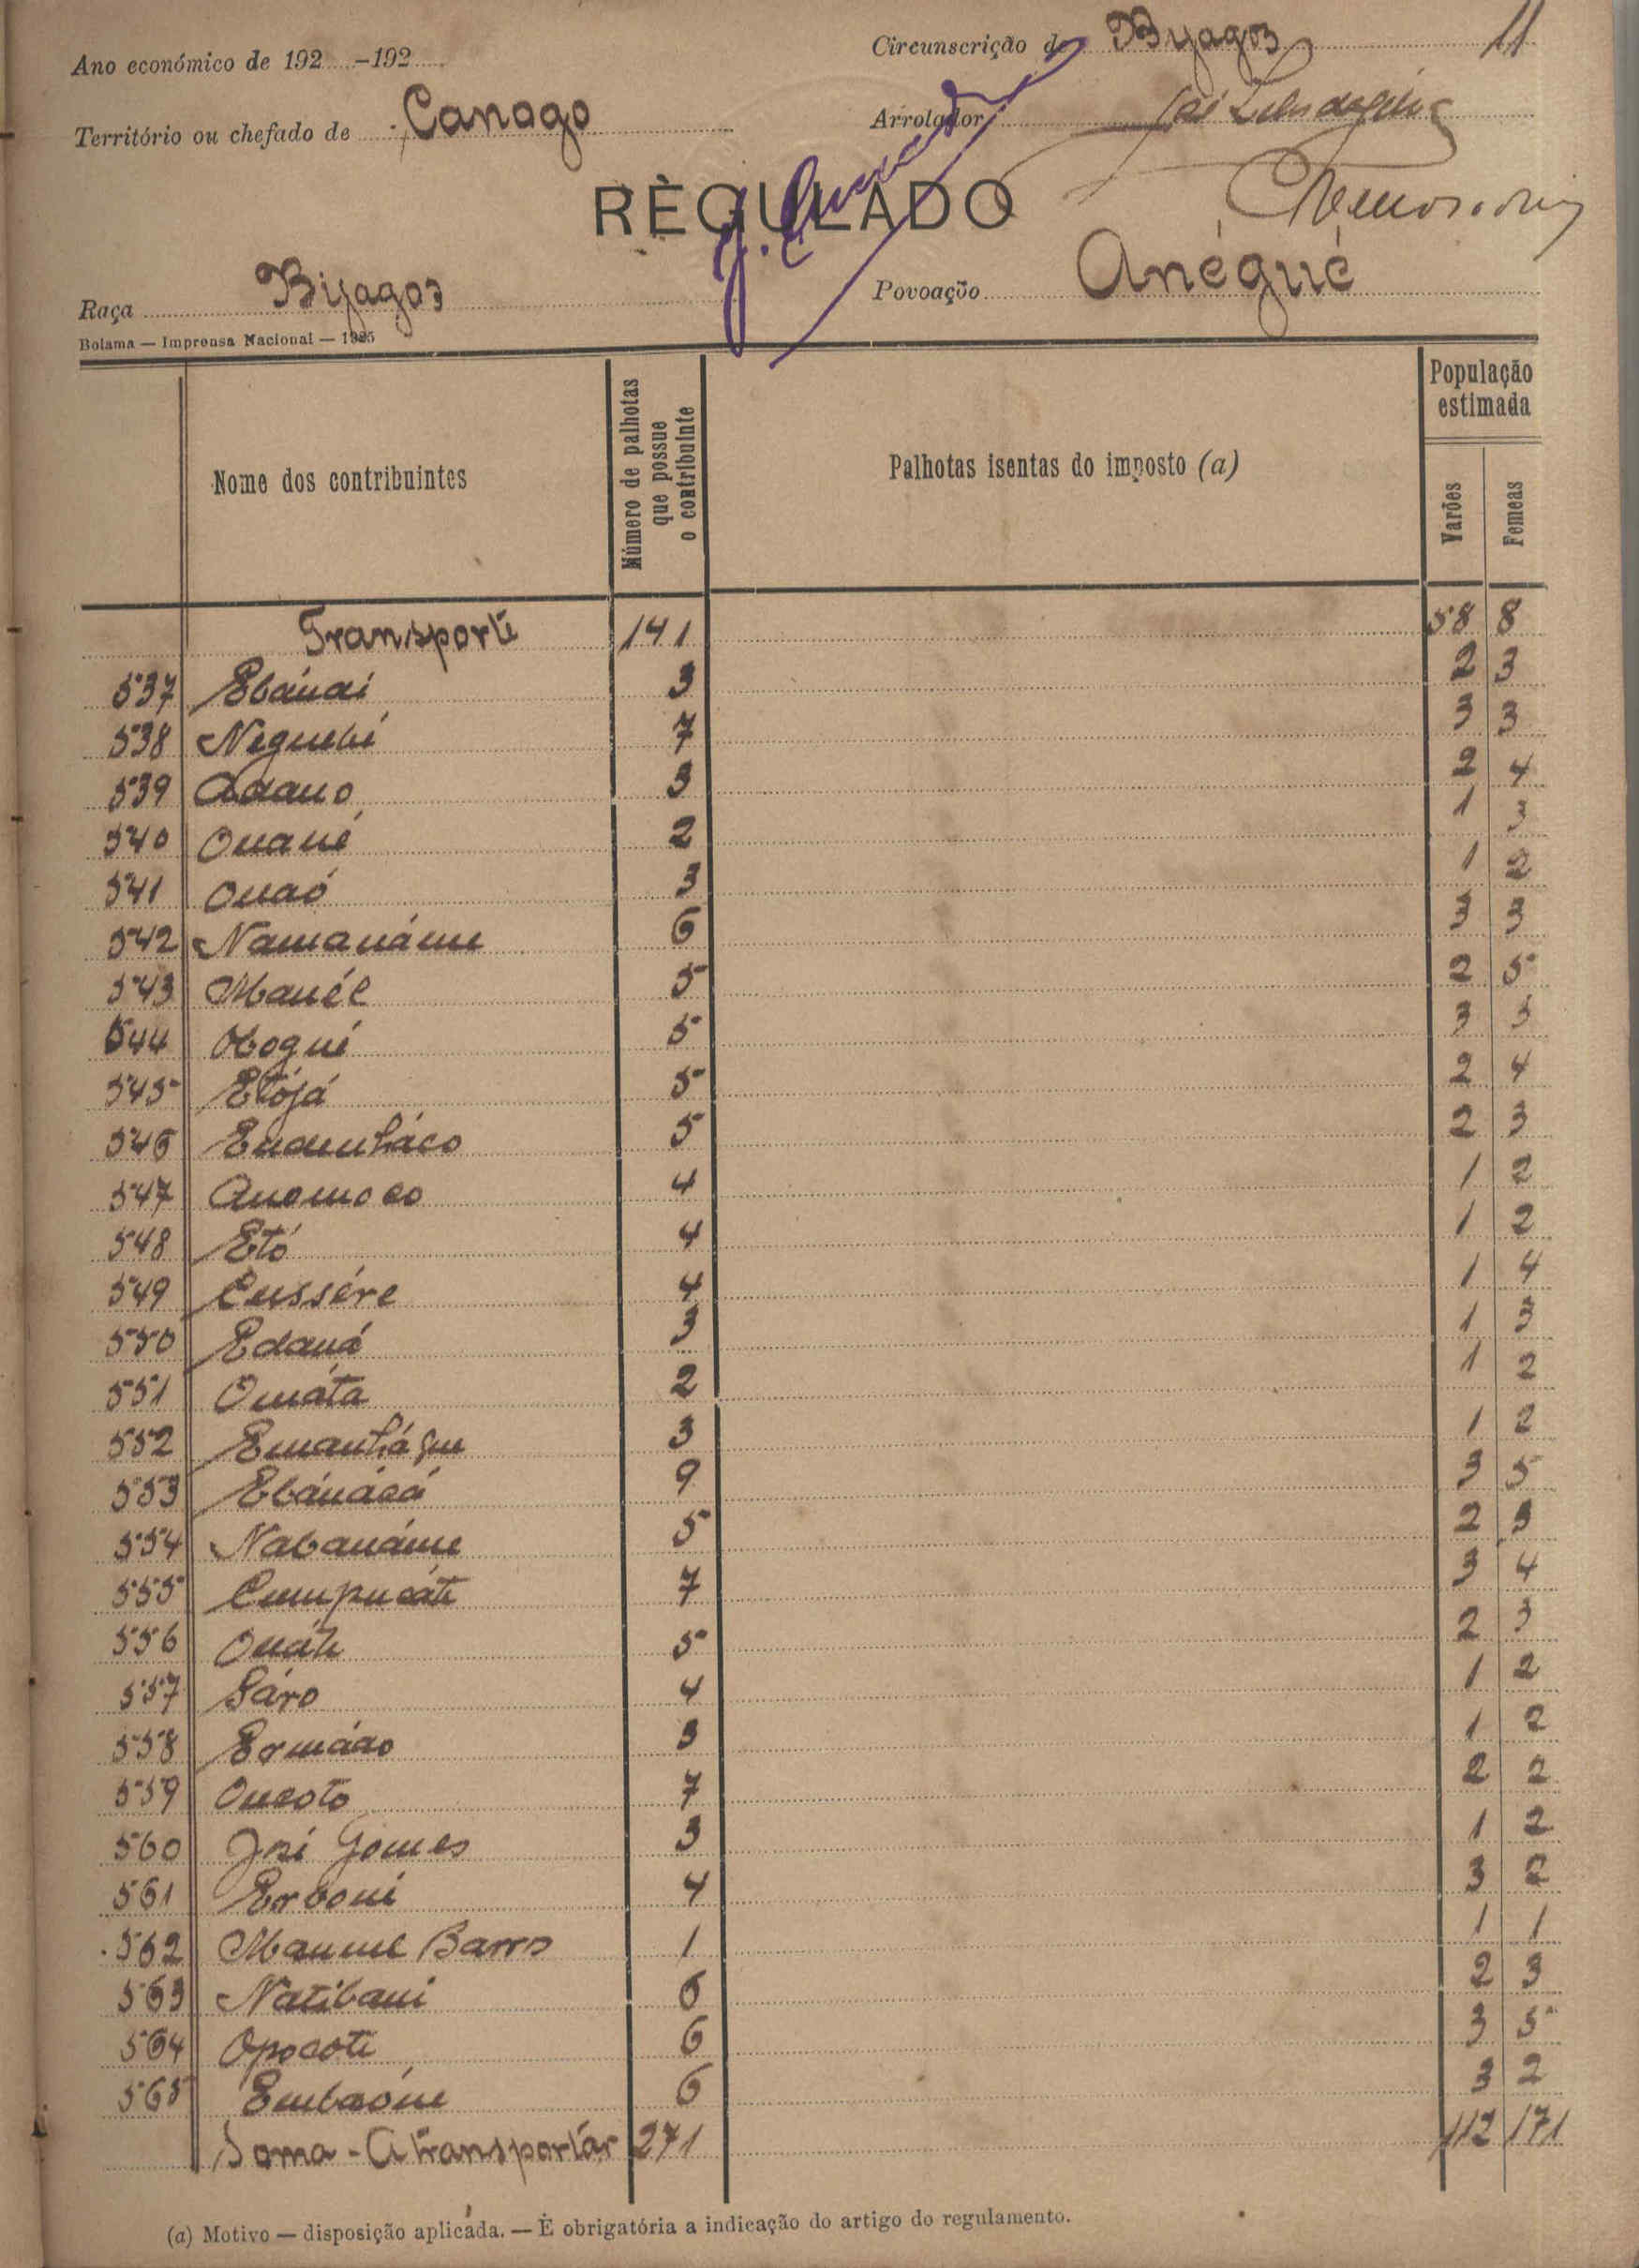 Ano económico de 192 -192
Circunscrição de Byagoz 11
Território ou chefado de Canogo
Arrolador
RÈGULADO
Raça Bijagoz
Povoação Anégué
Bolama — Imprensa Nacional — 1925
Nome dos contribuintes
Número de palhotas que possue o contribuinte
Palhotas isentas do imposto (a)
População estimada
Varões
Femeas
Transporte 141 58 8
537 Ebánai 3 2 3
538 Neguebi 7 3 3
539 Adano 3 2 4
540 Ouané 2 1 3
541 Ouaó 3 1 2
542 Namanáme 6 3 3
543 Manél 5 2 5
544 Obogué 5 3 3
545 Etójá 5 2 4
546 5 2 3
547 Anomoco 4 1 2
548 Etó 4 1 2
549 Cussére 4 1 4
550 Edaná 3 1 3
551 Omáta 2 1 2
552 3 1 2
553 Ebánácá 9 3 5
554 Nabanáme 5 2 3
555 Cumpucáte 7 3 4
556 Ouáte 5 2 3
557 Sáro 4 1 2
558 3 1 2
559 Oucoto 7 2 2
560 José Gomes 3 1 2
561 Erboni 4 3 2
562 Manuel Barros 1 1 1
563 Natibani 6 2 3
564 Opocote 6 3 5
565 6 3 2
Soma - A transportár 271 112 171
(a) Motivo — disposição aplicada. — É obrigatória a indicação do artigo do regulamento.